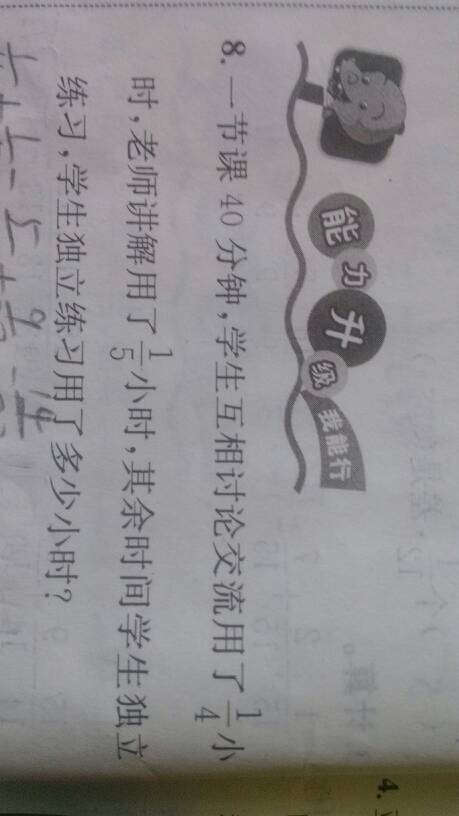 能力升级 我能行
8. 一节课 40 分钟,学生互相讨论交流用了 1/4 小
时,老师讲解用了 1/5 小时,其余时间学生独立
练习,学生独立练习用了多少小时?
4.